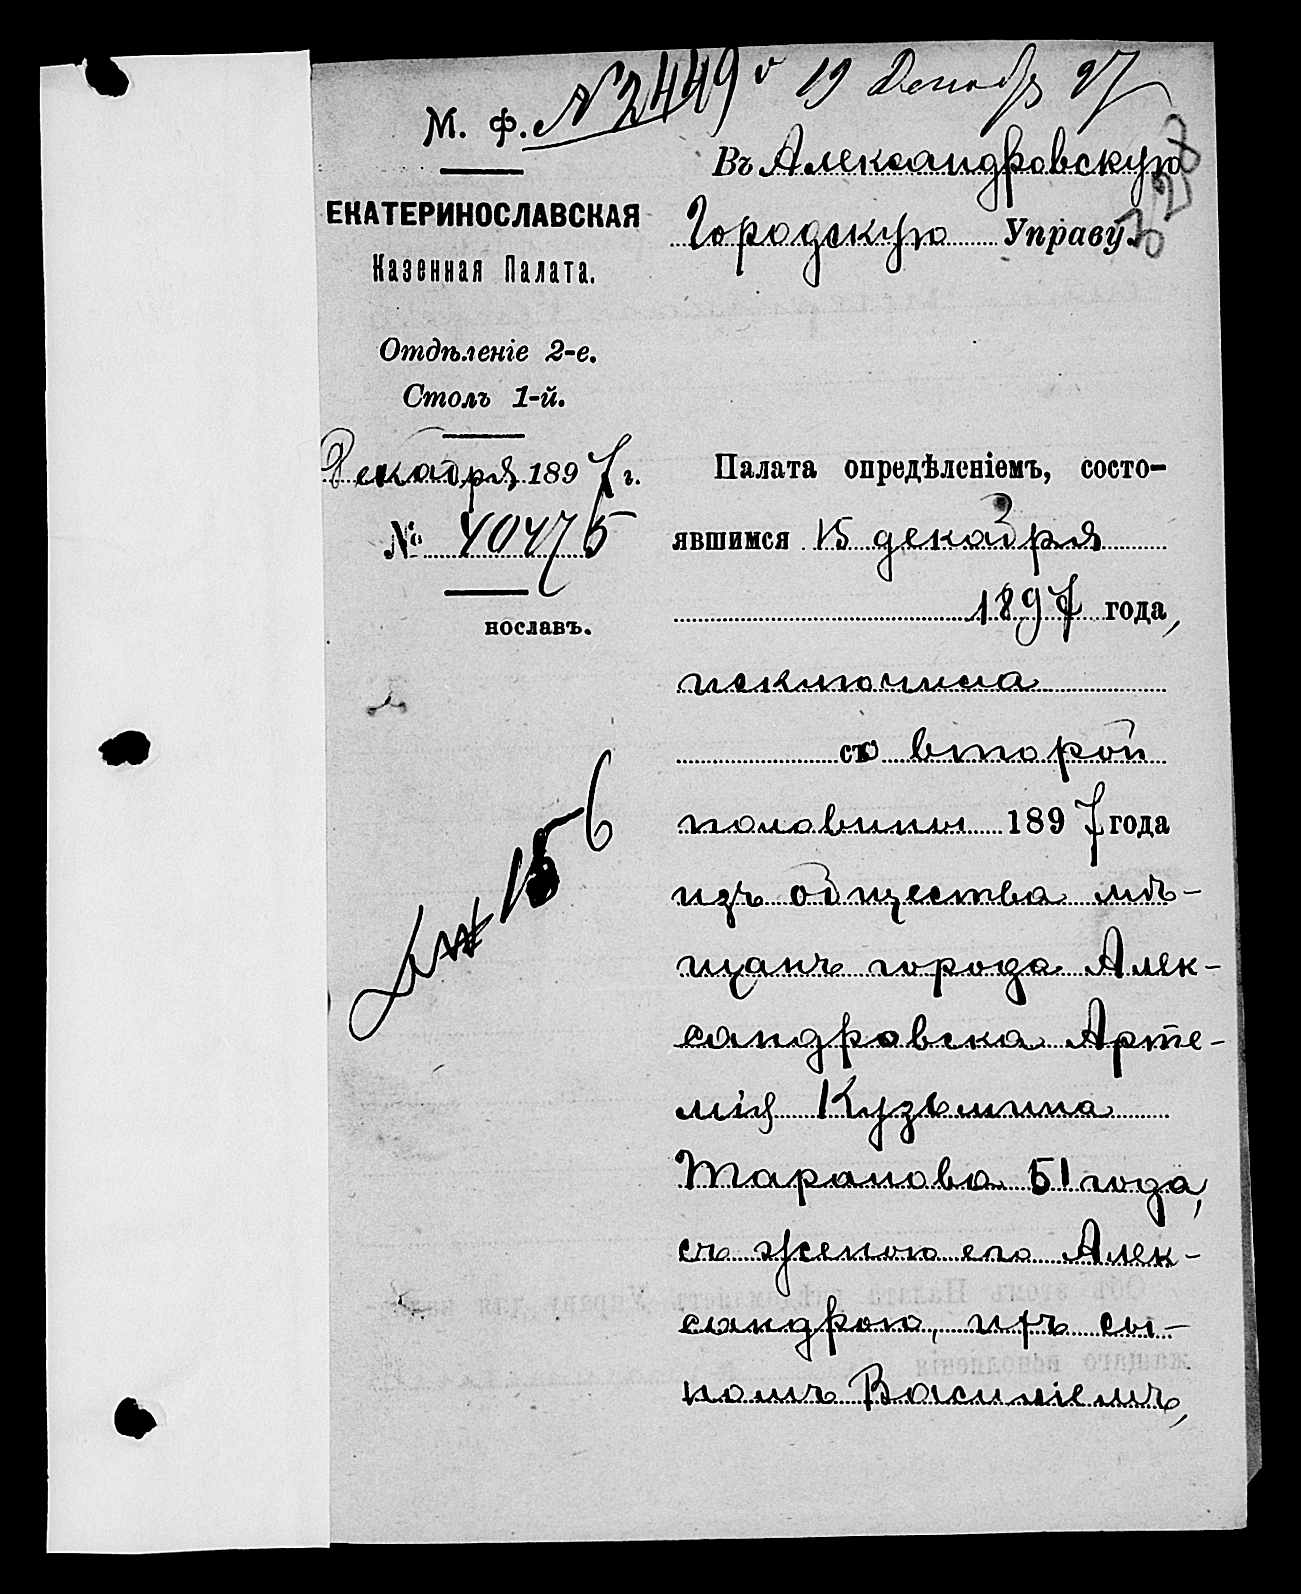 № 2449 19 Декабр 97
М. Ф.
ЕКАТЕРИНОСЛАВСКАЯ
Казенная Палата.
Отдѣленіе 2-е.
Столъ 1-й.
Декабря 1897 г.
№ 40475
нославъ.
156
Въ Александровскую
Городскую Управу.
328
Палата опредѣленіемъ, состо-
явшимся 15 декабря
1897 года,
исключила
со второй
половины 1897 года
изъ общества мѣ-
щанъ города Алек-
сандровска Арте-
мія Кузьмина
Таранова 51 года,
съ женою его Алек-
сандрою, ихъ сы-
номъ Василіемъ,